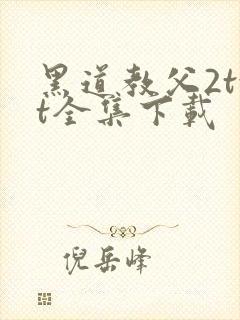 黑道教父2t
t全集下載
倪岳峰